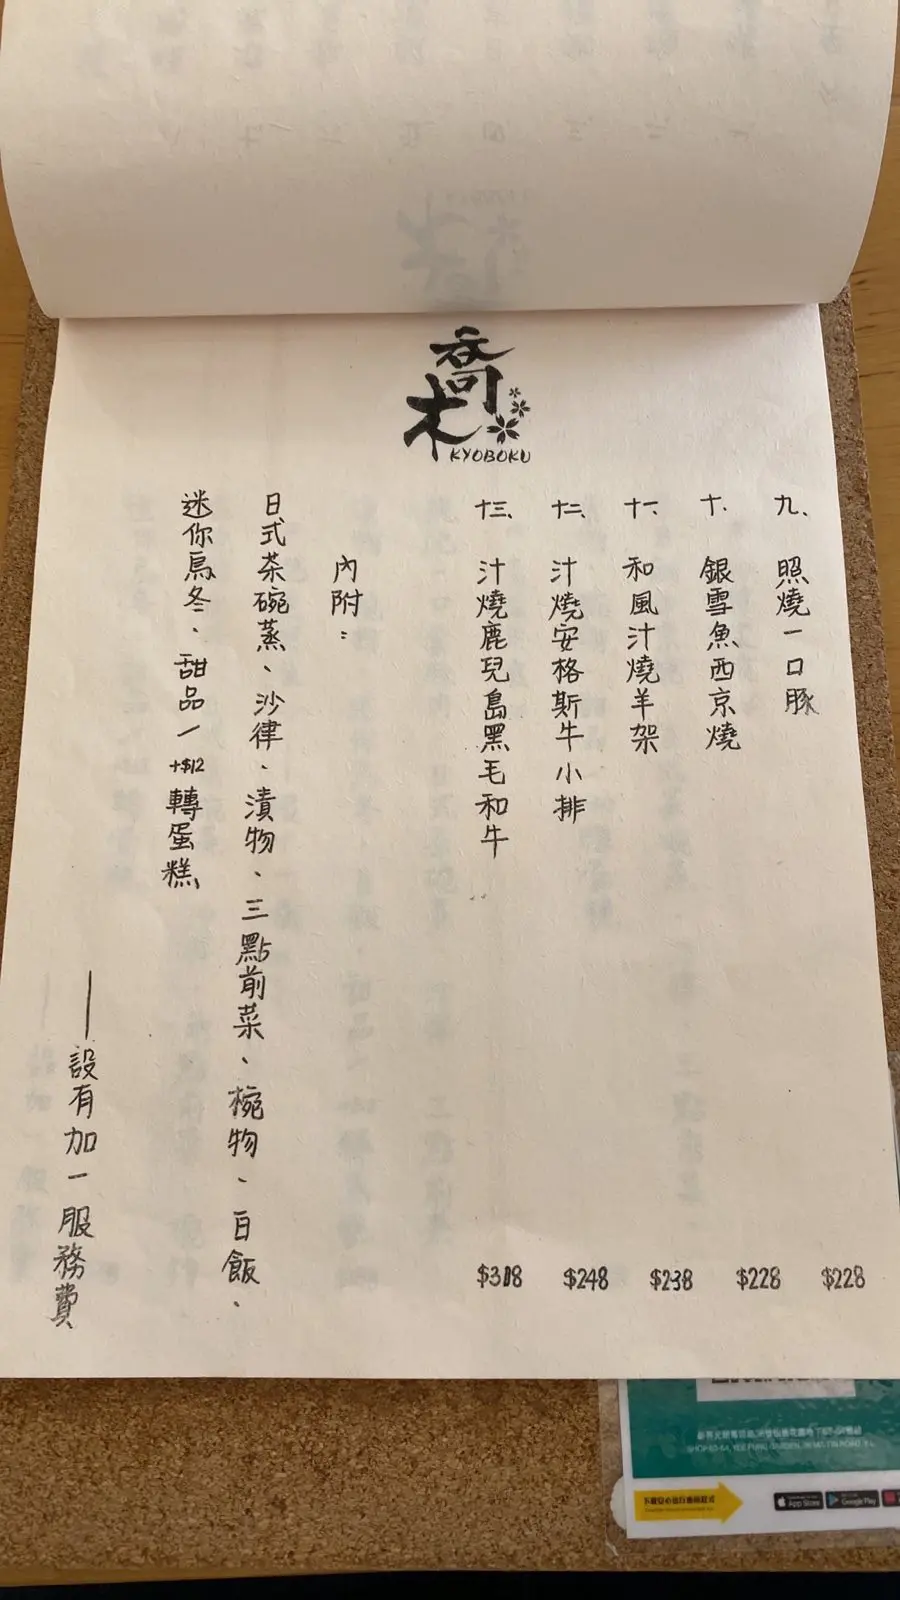 喬木
KYOBOKU
九、照燒一口豚 $228
十、銀雪魚西京燒 $228
十一、和風汁燒羊架 $238
十二、汁燒安格斯牛小排 $248
十三、汁燒鹿兒島黑毛和牛 $308
內附：
日式茶碗蒸、沙律、漬物、三點前菜、椀物、白飯、
迷你烏冬、甜品/+$12轉蛋糕
——設有加一服務費
App Store
Google Play